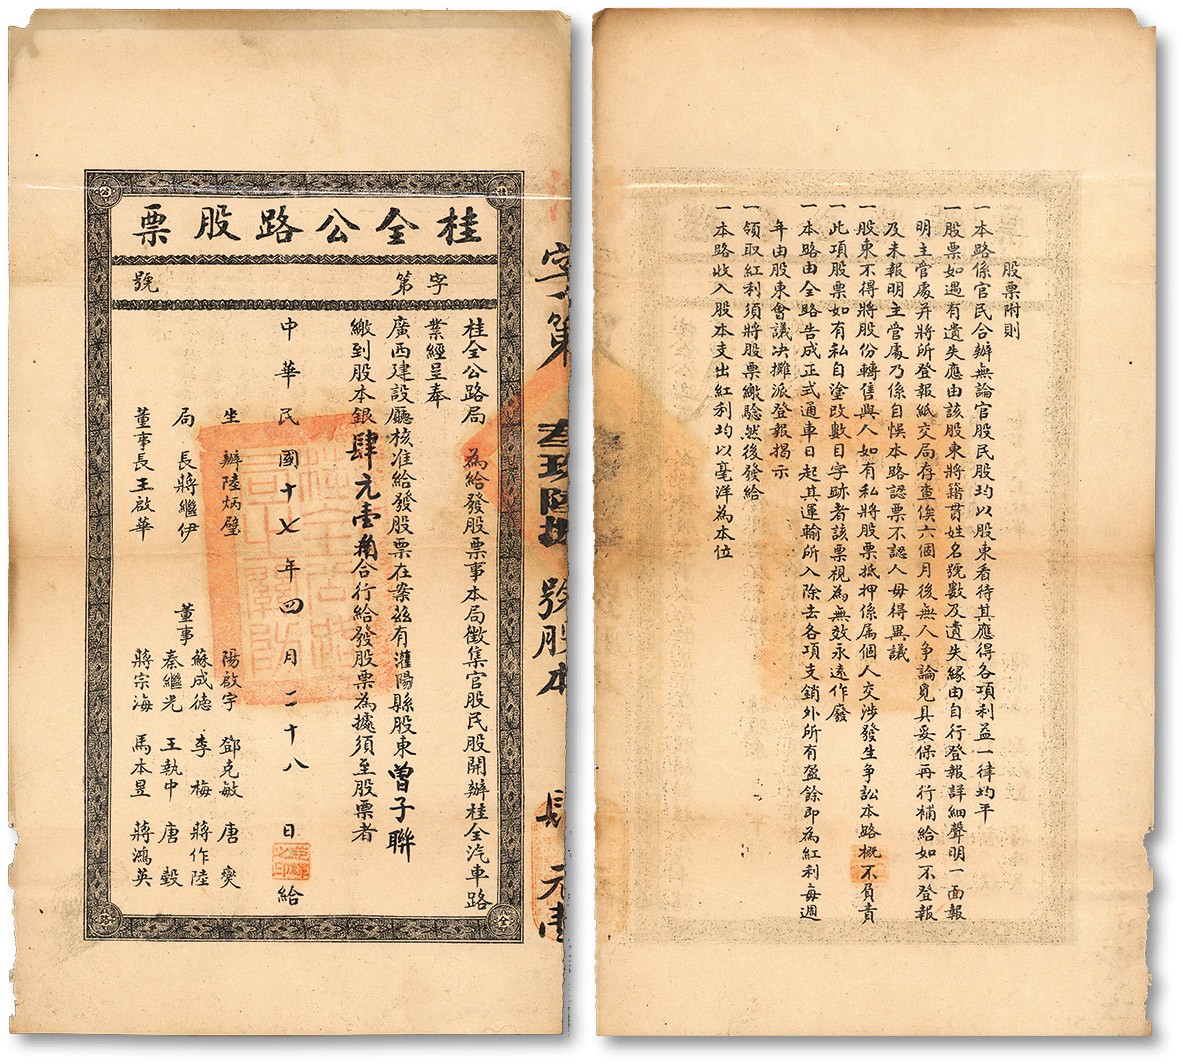 桂全公路股票
字第　號
桂全公路局　為給發股票事本局徵集官股民股開辦桂全汽車路
業經呈奉
廣西建設廳核准給發股票在案茲有灌陽縣股東曾子聯
繳到股本銀肆元壹角合行給發股票為據須至股票者
中華民國十七年四月二十八日給
坐辦陸炳璧
局長蔣繼伊
董事長王啟華
董事
陽啟宇　鄧克敏　唐奭
蘇成德　李梅　蔣作陸
秦繼光　王執中　唐毅
蔣宗海　馬本昱　蔣鴻英
字第　號股本　肆元壹
股票附則
一本路係官民合辦無論官股民股均以股東看待其應得各項利益一律均平
一股票如遇有遺失應由該股東將籍貫姓名號數及遺失緣由自行登報詳細聲明一面報
明主管處并將所登報紙交局存查俟六個月後無人爭論覓具妥保再行補給如不登報
及未報明主管處乃係自悮本路認票不認人毋得異議
一股東不得將股份轉售與人如有私將股票抵押係屬個人交涉發生爭訟本路概不負責
一此項股票如有私自塗改數目字跡者該票視為無效永遠作廢
一本路由全路告成正式通車日起其運輸所入除去各項支銷外所有盈餘即為紅利每週
年由股東會議决攤派登報揭示
一領取紅利須將股票繳驗然後發給
一本路收入股本支出紅利均以毫洋為本位